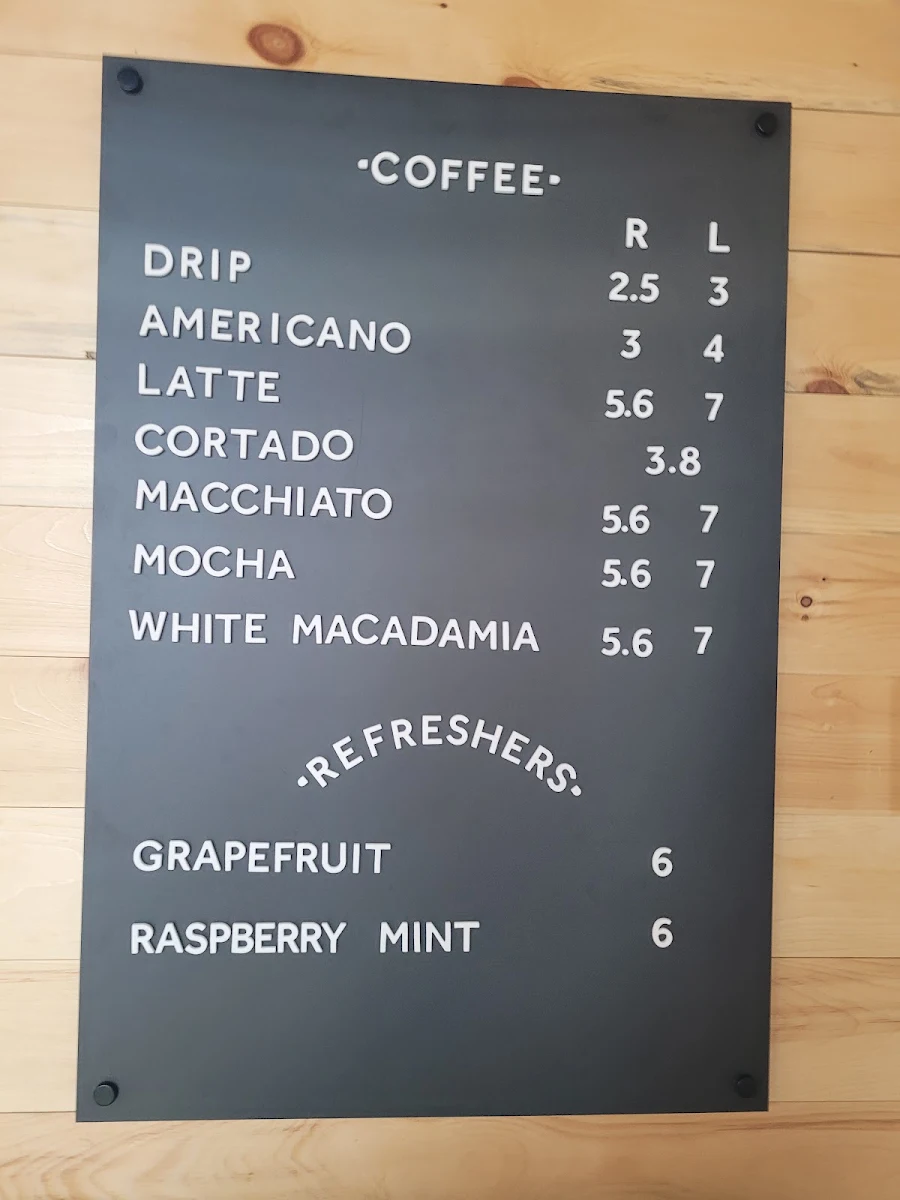 ·COFFEE·
R L
DRIP 2.5 3
AMERICANO 3 4
LATTE 5.6 7
CORTADO 3.8
MACCHIATO 5.6 7
MOCHA 5.6 7
WHITE MACADAMIA 5.6 7
·REFRESHERS·
GRAPEFRUIT 6
RASPBERRY MINT 6